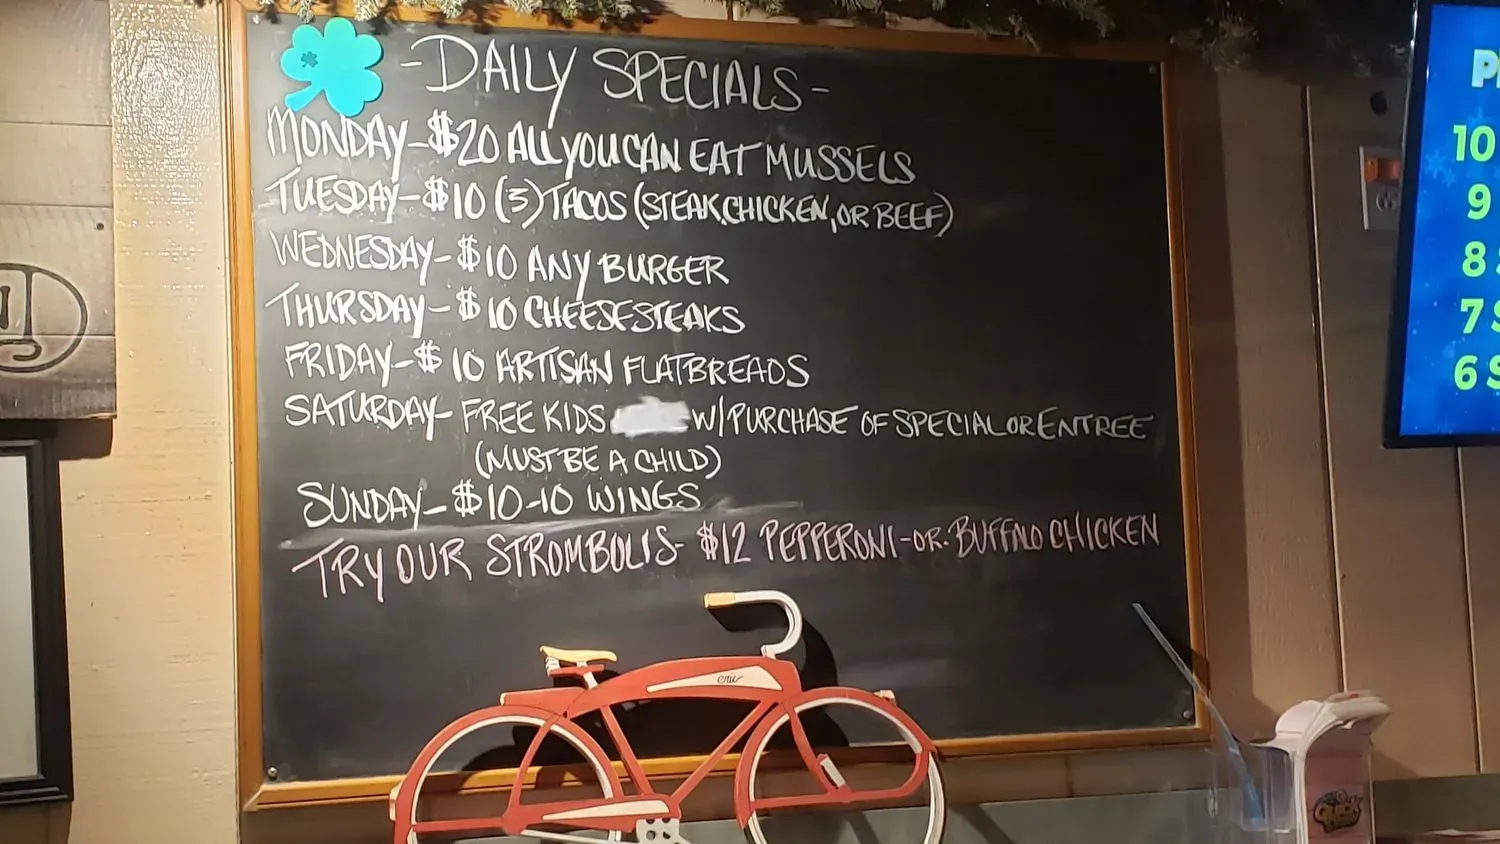 -DAILY SPECIALS-
MONDAY-$20 ALL YOU CAN EAT MUSSELS
TUESDAY-$10 (3) TACOS (STEAK, CHICKEN, OR BEEF)
WEDNESDAY-$10 ANY BURGER
THURSDAY-$10 CHEESESTEAKS
FRIDAY-$10 ARTISAN FLATBREADS
SATURDAY- FREE KIDS W/PURCHASE OF SPECIAL OR ENTREE
(MUST BE A CHILD)
SUNDAY-$10-10 WINGS
TRY OUR STROMBOLIS- $12 PEPPERONI-OR-BUFFALO CHICKEN
eric
10
9
8
7
6